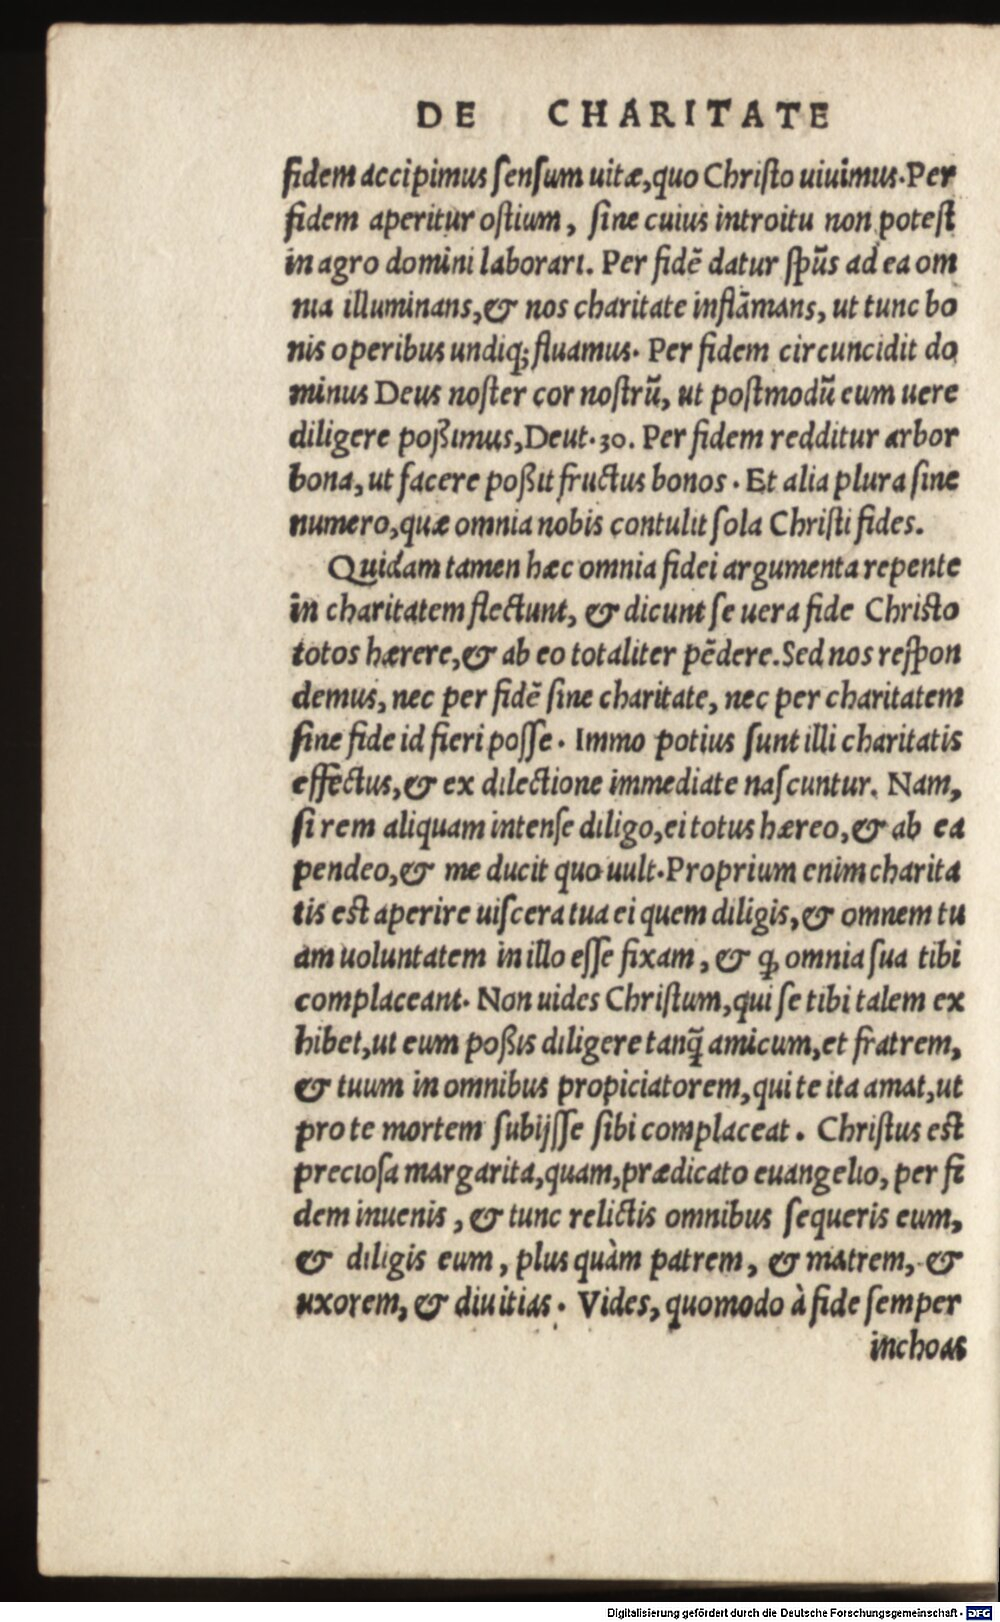 DE CHARITATE
fidem accipimus ſenſum uitæ, quo Chriſto uiuimus. Per
fidem aperitur oſtium, ſine cuius introitu non poteſt
in agro domini laborari. Per fidẽ datur ſpũs ad ea om
nia illuminans, & nos charitate inflãmans, ut tunc bo
nis operibus undiq; fluamus. Per fidem circuncidit do
minus Deus noſter cor noſtrũ, ut poſtmodũ eum uere
diligere poßimus, Deut. 30. Per fidem redditur arbor
bona, ut facere poßit fructus bonos. Et alia plura ſine
numero, quæ omnia nobis contulit ſola Chriſti fides.
Quidam tamen hæc omnia fidei argumenta repente
in charitatem flectunt, & dicunt ſe uera fide Chriſto
totos hærere, & ab eo totaliter pẽdere. Sed nos reſpon
demus, nec per fidẽ ſine charitate, nec per charitatem
ſine fide id fieri poſſe. Immo potius ſunt illi charitatis
effectus, & ex dilectione immediate naſcuntur. Nam,
ſi rem aliquam intenſe diligo, ei totus hæreo, & ab ea
pendeo, & me ducit quo uult. Proprium enim charita
tis eſt aperire uiſcera tua ei quem diligis, & omnem tu
am uoluntatem in illo eſſe fixam, & ꝙ omnia ſua tibi
complaceant. Non uides Chriſtum, qui ſe tibi talem ex
hibet, ut eum poßis diligere tanq̃ amicum, et fratrem,
& tuum in omnibus propiciatorem, qui te ita amat, ut
pro te mortem ſubijſſe ſibi complaceat. Chriſtus eſt
precioſa margarita, quam, prædicato euangelio, per fi
dem inuenis, & tunc relictis omnibus ſequeris eum,
& diligis eum, plus quàm patrem, & matrem, &
uxorem, & diuitias. Vides, quomodo à fide ſemper
inchoas
Digitalisierung gefördert durch die Deutsche Forschungsgemeinschaft - DFG